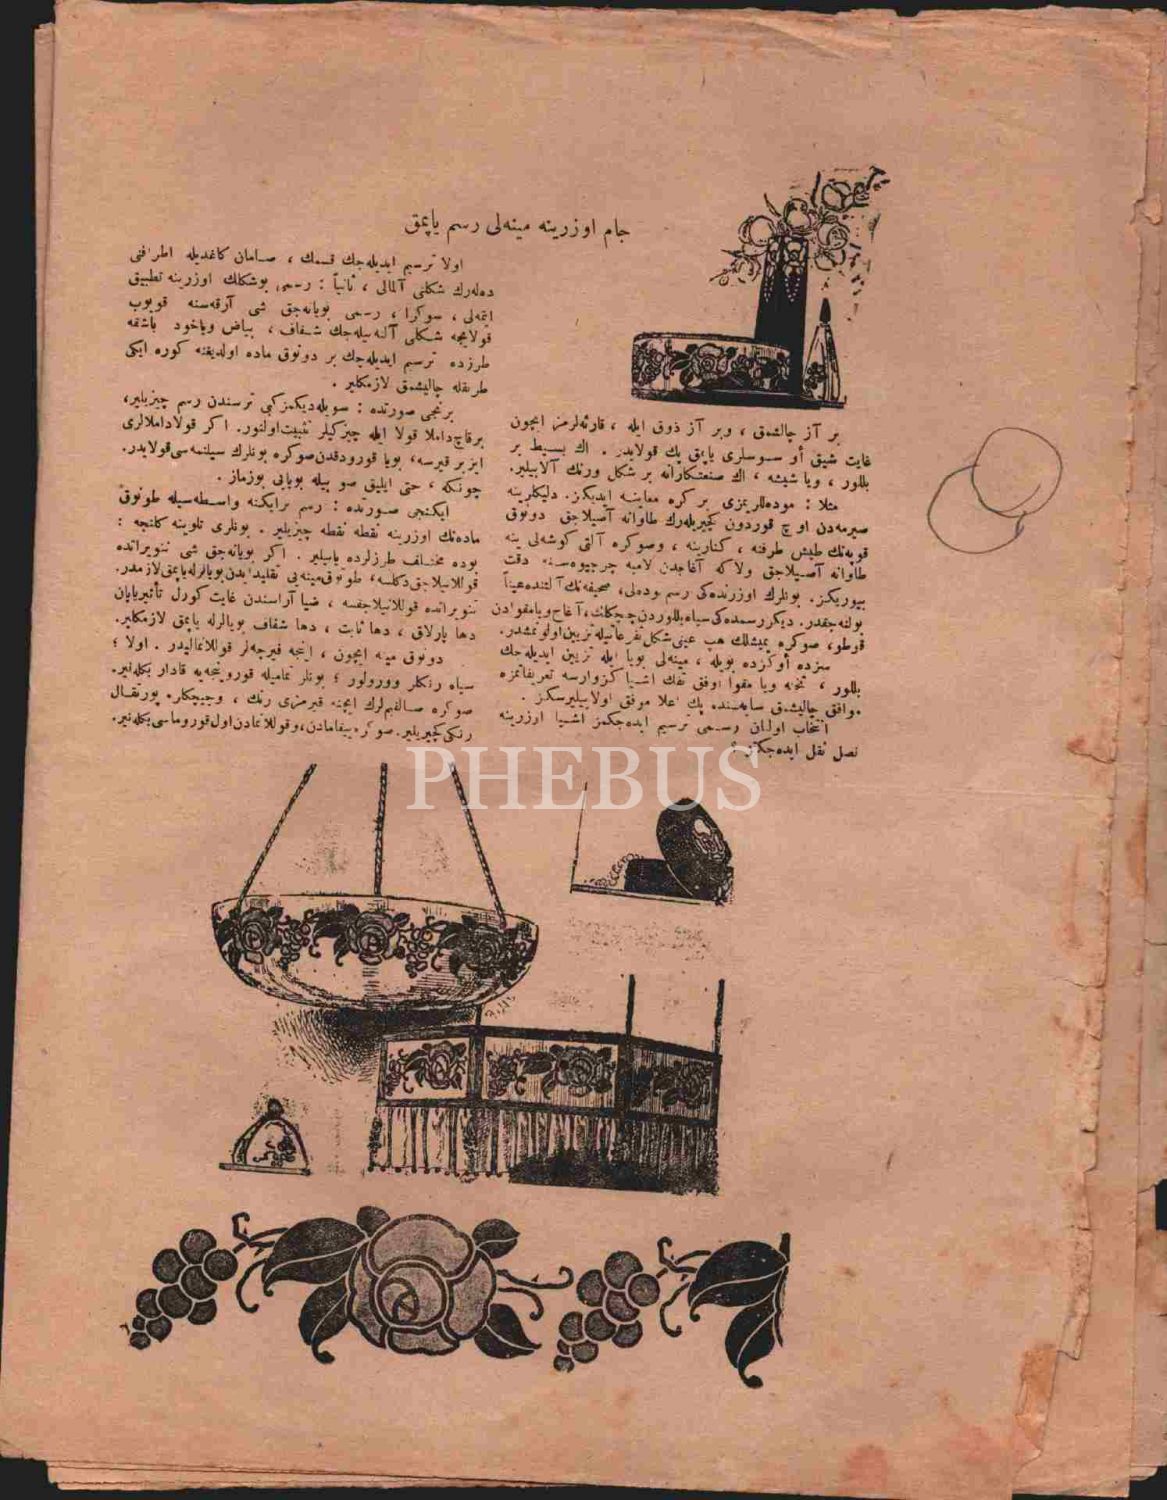 جام اوزرینه مینه‌لی رسم یاپمق
بر آز چالشمق ، وبر آز ذوق ایله ، قارئه‌لرمز ایچون
غایت شیق أو سوسلری یاپمق پك قولایدر . اك بسیط بر
بللور ، ویا شیشه ، اك صنعتکارانه بر شکل ورنك آلابیلیر.
مثلا : موده‌للریمزی بر کره معاینه ایدیکز. دلیکلرینه
صیرمه‌دن او چ قوردون کچیریله‌رك طاوانه آصیلاجق دونوق
قوپه‌نك طیش طرفنه ، کنارینه ، وصوکره آلتی کوشه‌لی ینه
طاوانه آصیلاجق ولاکه آغاجدن لامبه چرچیوه‌سنه دقت
بیوریکز. بونلرك اوزرنده‌کی رسم موده‌لی، صحیفه‌نك آلتنده عیناً
بولنه‌جقدر. دیکر رسمده‌کی سیاه بللوردن چیچکلك، آغاج ویا مقوادن
قوطو، صوکره یمیشلك هپ عینی شکل تفرعاتیله تزیین اولونمشدر.
سزده أوکزده بویله ، مینه‌لی بویا ایله تزیین ایدیله‌جك
بللور ، تخته ویا مقوا اوفق تفك اشیا کزوارسه تعریفاتمزه
موافق چالیشمق سایه‌سنده پك اعلا موفق اولابیلیرسکز .
انتخاب اولنان رسمی ترسیم ایده‌جکمز اشیا اوزرینه
نصل نقل ایده‌جکز ؟
اولا ترسیم ایدیله‌جك قسمك ، صامان کاغدیله اطرافنی
ده‌له‌رك شکلنی آلمالی ، ثانیاً : رسمی بوشکلك اوزرینه تطبیق
ایتمه‌لی ، سوکرا ، رسمی بویانه‌جق شی آرقه‌سنه قویوب
قولایجه شکلی آلنه‌بیله‌جك شفاف ، بیاض ویاخود باشقه
طرزده ترسیم ایدیله‌جك بر دونوق ماده اولدیغنه کوره ایکی
طریقله چالیشمق لازمکلیر .
برنجی صورتده : سویله‌دیکمز کبی ترسندن رسم چیزیلیر،
برقاچ داملا قولا ایله چیزکیلر تثبیت اولنور. اکر قولا داملالری
ایز بر قیرسه، بویا قورودقدن صوکره بونلرك سیلنمه‌سی قولایدر.
چونکه ، حتی ایلیق صو بیله بویایی بوزماز .
ایکنجی صورتده : رسم برایکنه واسطه‌سیله طونوق
ماده‌نك اوزرینه نقطه نقطه چیزیلیر . بونلری تلوینه کلنجه :
بوده مختلف طرزلرده یاپیلیر . اکر بویانه‌جق شی تنویراتده
قوللانیلاجق دکلسه، طونوق مینه‌یی تقلید ایدن بویالرله یاپمق لازمدر.
تنویراتده قوللانیلاجقسه ، ضیا آراسندن غایت کوزل تأثیر یاپان
دها پارلاق ، دها ثابت ، دها شفاف بویالرله یاپمق لازمکلیر.
دونوق مینه ایچون ، اینجه فیرچه‌لر قوللانمالیدر . اولا ؛
سیاه رنکلر وورولور ؛ بونلر تمامیله قورویینجه‌یه قادار بکله‌نیر.
صوکره صالقیملرك ایچنه قیرمزی رنك ، وچیچکلره پورتقال
رنکی کچیریلیر. صوکره ییقامادن، وقوللانمادن اول قوروماسی بکله‌نیر.
PHEBUS